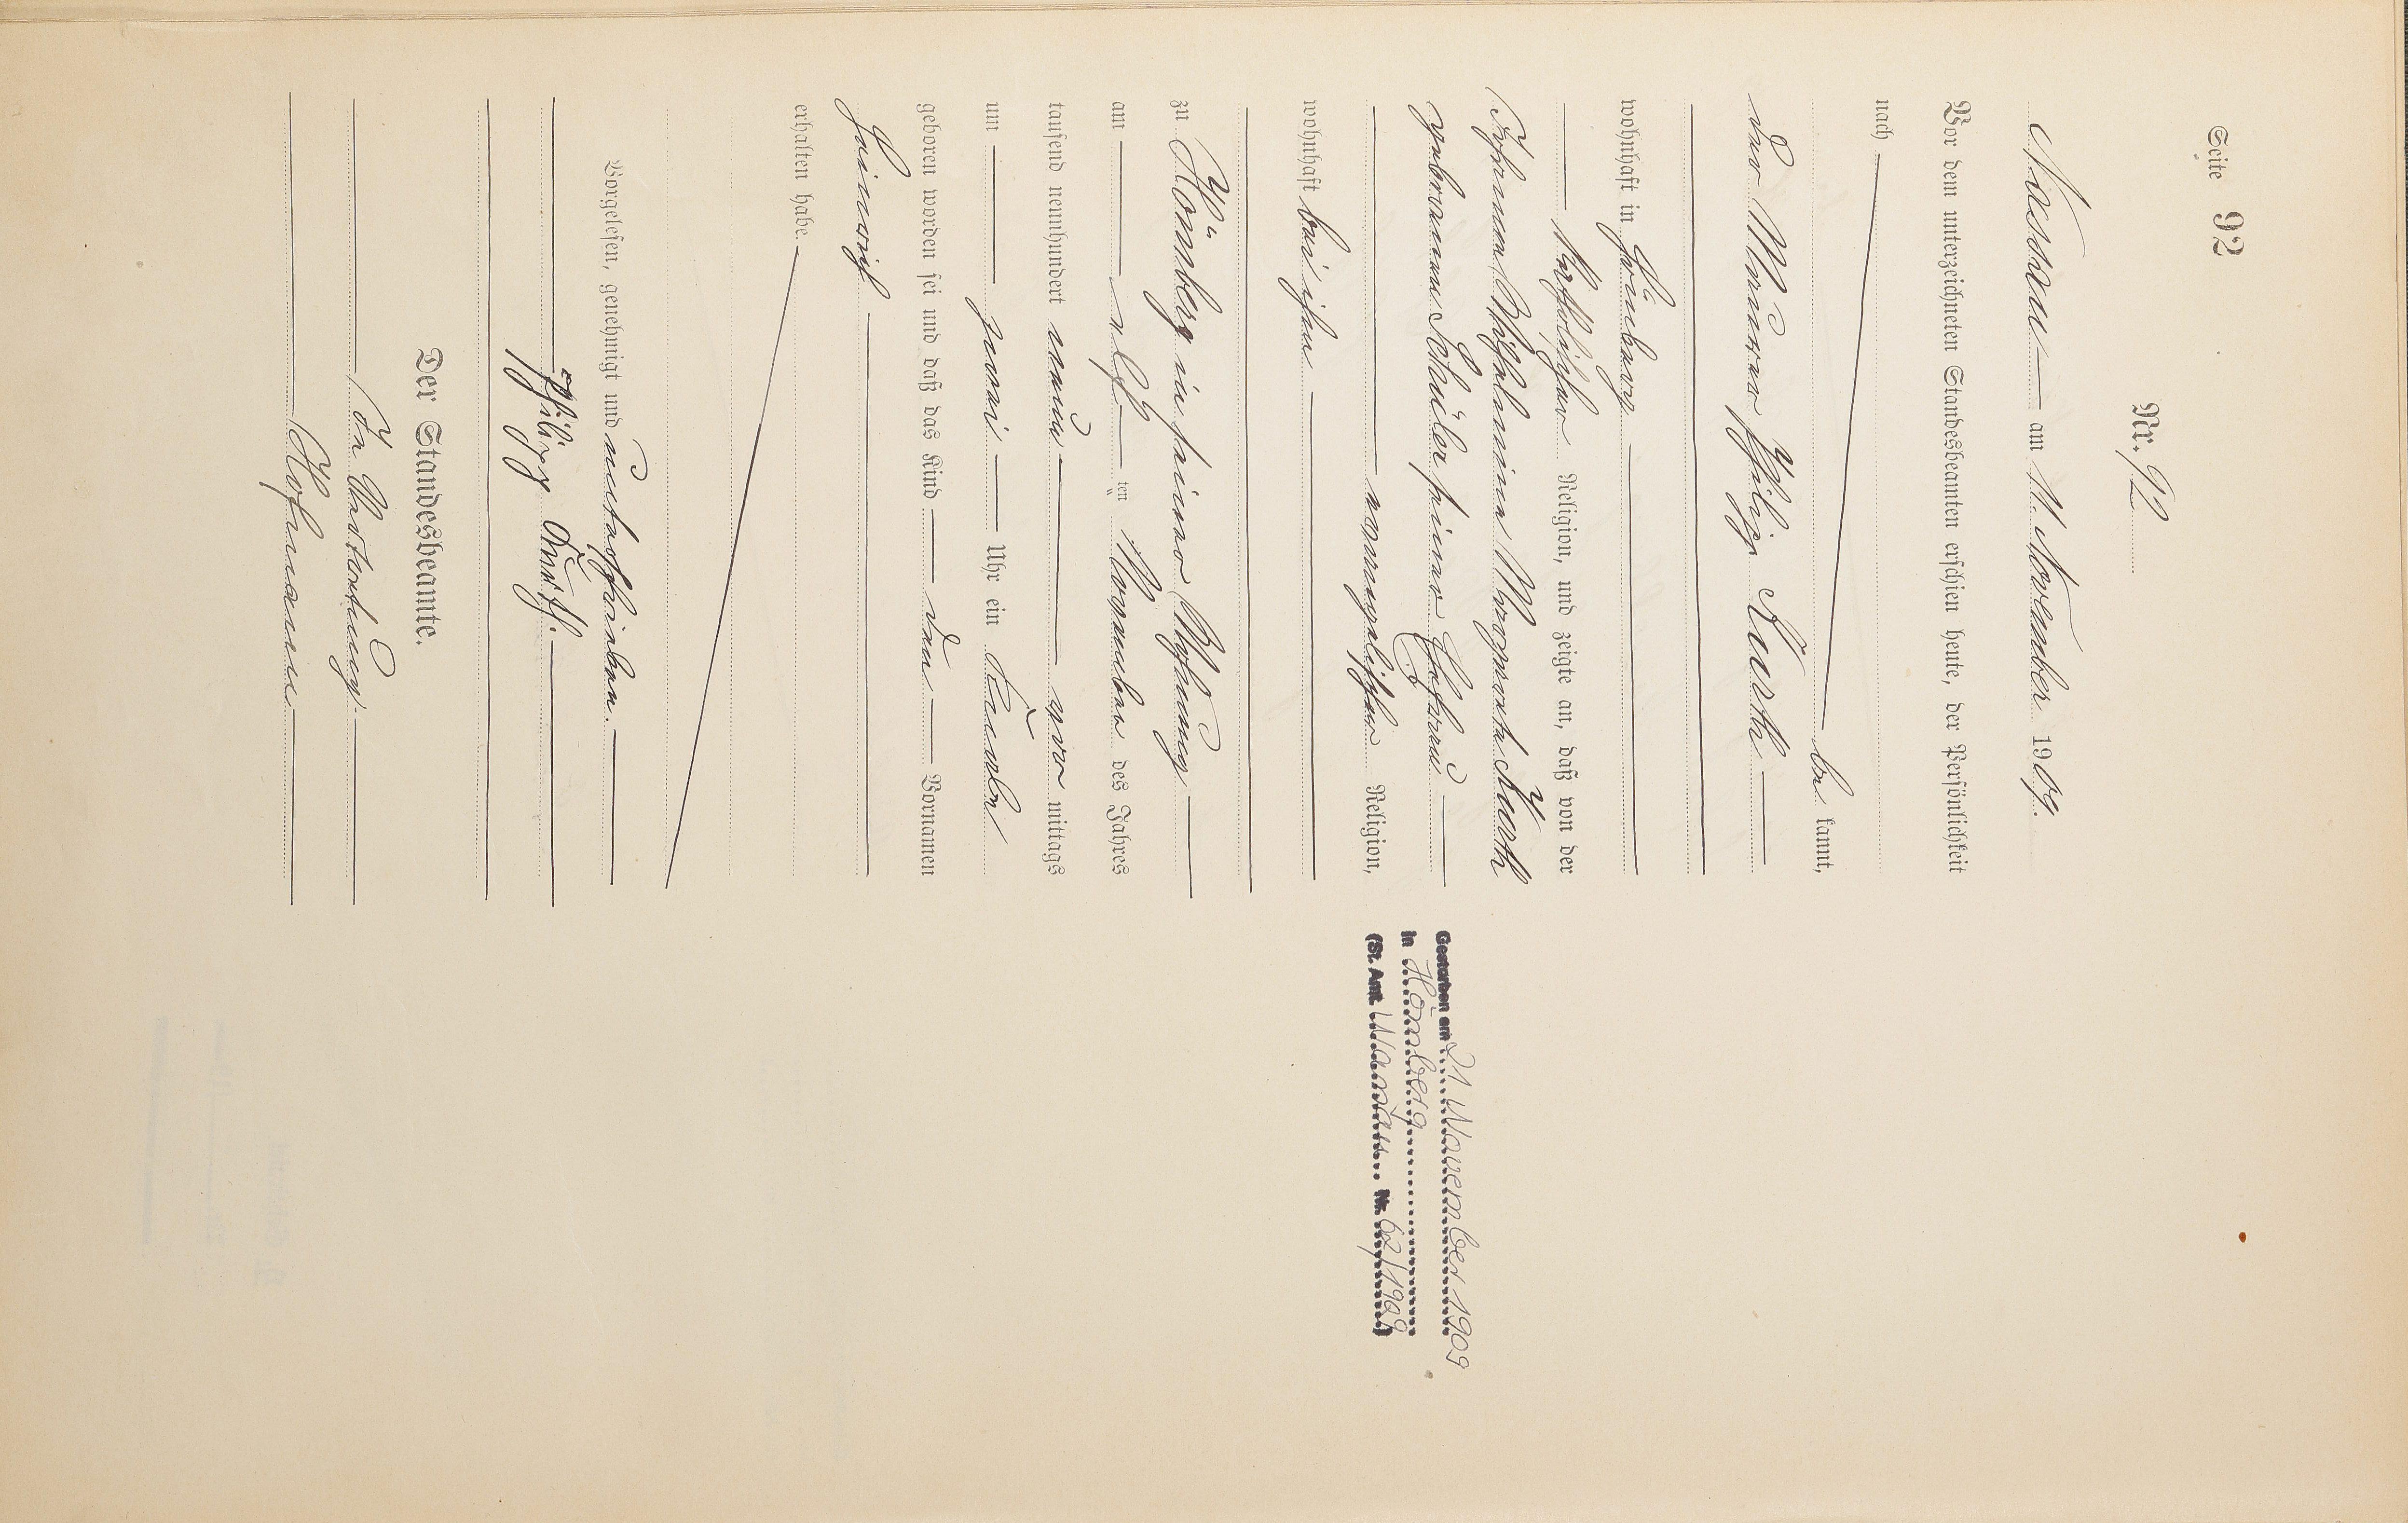 Seite 92
Nr. 92
Nassau am 11. November 1909.
Vor dem unterzeichneten Standesbeamten erschien heute, der Persönlichkeit
nach
be kannt,
der Maurer Philipp Kurth
wohnhaft in Hömberg
katholischer Religion, und zeigte an, daß von der
Johanna Wilhelmina Margareta Kurth
geborenen Scheuler seiner Ehefrau
evangelischer Religion,
wohnhaft bei ihm
zu Hömberg in seiner Wohnung
am elf ten November des Jahres
tausend neunhundert neun vor mittags
um zwei Uhr ein Knabe
geboren worden sei und daß das Kind den Vornamen
Heinrich
erhalten habe.
Vorgelesen, genehmigt und unterschrieben.
Philipp Kurth.
Der Standesbeamte.
In Vertretung
Hofmann
Gestorben am 21. November 1909
in Hömberg
(St. Amt Nassau Nr. 62/1909)